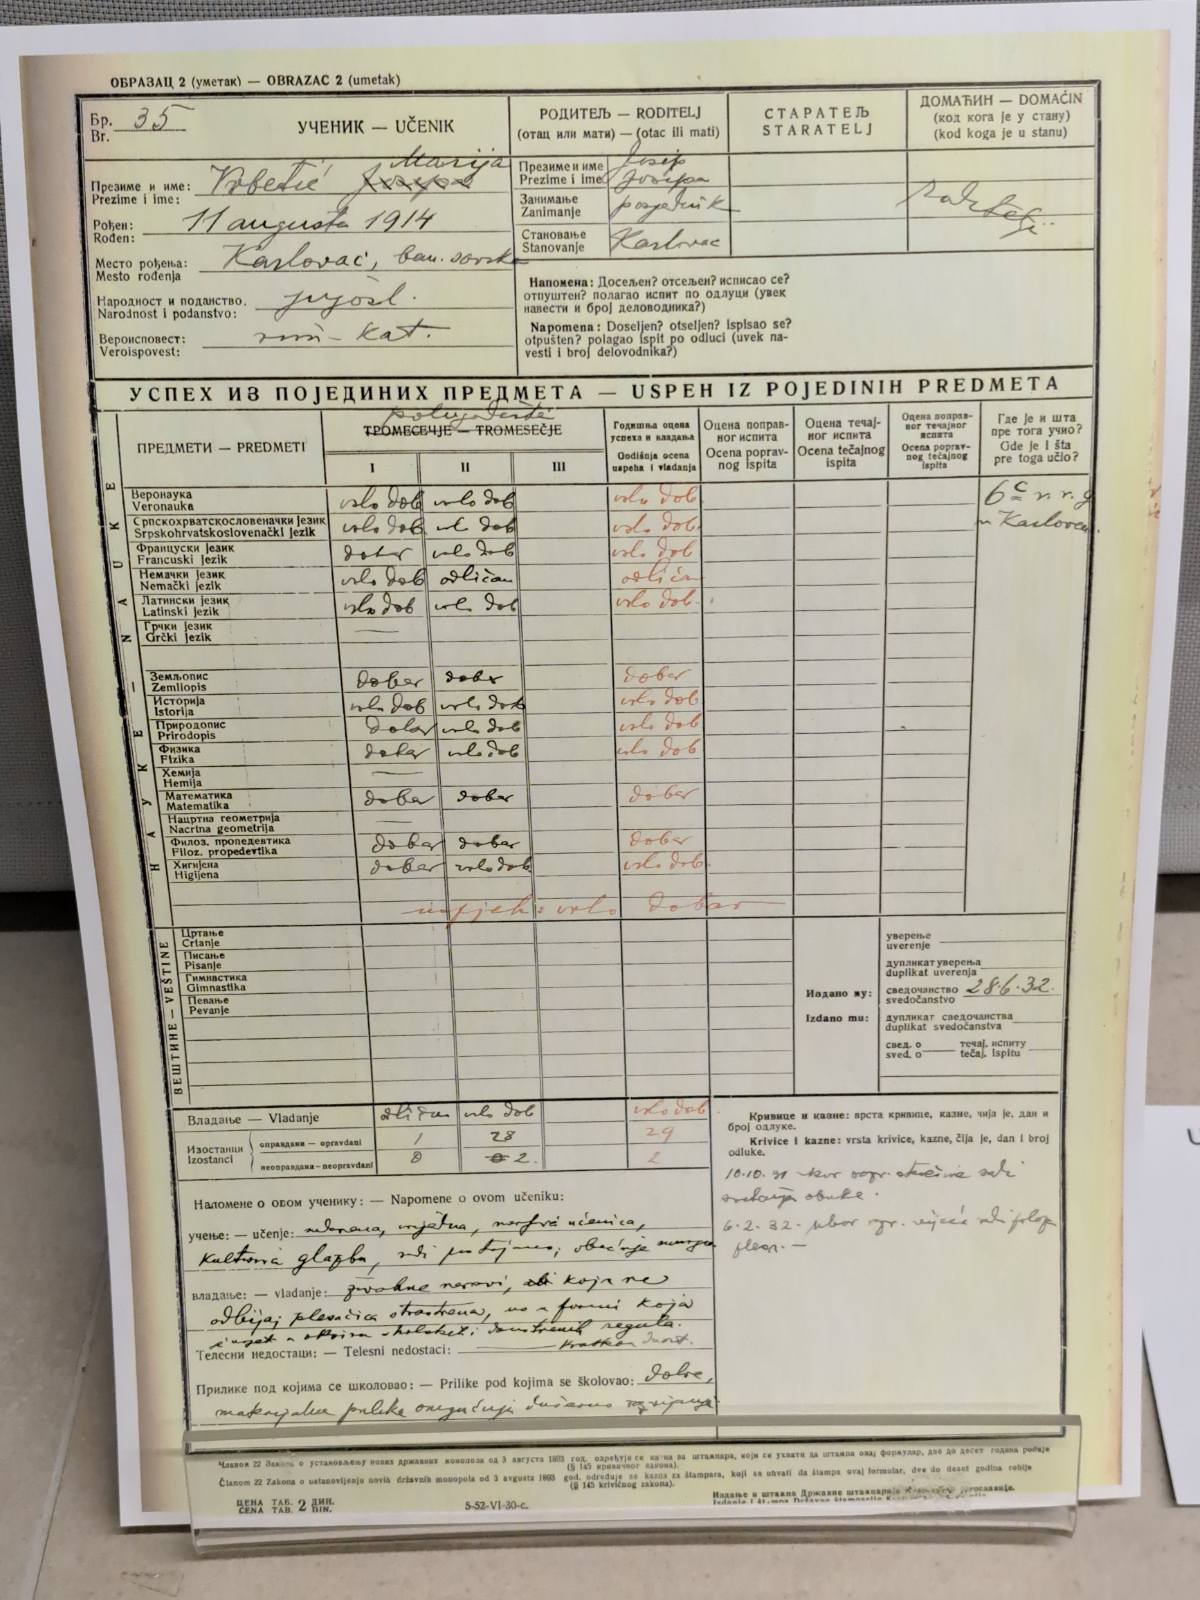 ОБРАЗАЦ 2 (уметак) — OBRAZAC 2 (umetak)
Бр. Br. 35
УЧЕНИК — UČENIK
РОДИТЕЉ — RODITELJ
(отац или мати) — (otac ili mati)
СТАРАТЕЉ
STARATELJ
ДОМАЋИН — DOMAĆIN
(код кога је у стану)
(kod koga je u stanu)
Marija
Презиме и име:
Prezime i ime:
Vrbetić Josipa
Рођен:
Rođen:
11 augusta 1914
Место рођења:
Mesto rođenja
Karlovac, ban. savska
Народност и поданство.
Narodnost i podanstvo:
jugosl.
Вероисповест:
Veroispovest:
rim-kat.
Презиме и име
Prezime i ime
Josip
Josipa
Занимање
Zanimanje
posjednik
Становање
Stanovanje
Karlovac
roditelji
Напомена: Досељен? отсељен? исписао се?
отпуштен? полагао испит по одлуци (увек
навести и број деловодника?)
Napomena: Doseljen? otseljen? ispisao se?
otpušten? polagao ispit po odluci (uvek na-
vesti i broj delovodnika?)
УСПЕХ ИЗ ПОЈЕДИНИХ ПРЕДМЕТА — USPEH IZ POJEDINIH PREDMETA
ПРЕДМЕТИ — PREDMETI
polugodište
ТРОМЕСЕЧЈЕ — TROMESEČJE
I II III
Годишња оцена
успеха и владања
Godišnja ocena
uspeha i vladanja
Оцена поправ-
ног испита
Ocena poprav-
nog ispita
Оцена течај-
ног испита
Ocena tečajnog
ispita
Оцена поправ-
ног течајног
испита
Ocena poprav-
nog tečajnog
ispita
Где је и шта
пре тога учио?
Gde je i šta
pre toga učio?
6 r. r. g
u Karlovcu
НАУКЕ — NAUKE
Веронаука
Veronauka
vrlo dob vrlo dob vrlo dob
Српскохрватскословеначки језик
Srpskohrvatskoslovenački jezik
vrlo dob vrlo dob vrlo dob
Француски језик
Francuski jezik
dobar vrlo dob vrlo dob
Немачки језик
Nemački jezik
vrlo dob odličan odličan
Латински језик
Latinski jezik
vrlo dob vrlo dob vrlo dob
Грчки језик
Grčki jezik
—
Земљопис
Zemljopis
dobar dobar dobar
Историја
Istorija
vrlo dob vrlo dob vrlo dob
Природопис
Prirodopis
dobar vrlo dob vrlo dob
Физика
Fizika
dobar vrlo dob vrlo dob
Хемија
Hemija
—
Математика
Matematika
dobar dobar dobar
Нацртна геометрија
Nacrtna geometrija
—
Филоз. пропедевтика
Filoz. propedevtika
dobar dobar dobar
Хигијена
Higijena
dobar vrlo dob vrlo dob
uspjeh: vrlo dobar
ВЕШТИНЕ — VEŠTINE
Цртање
Crtanje
Писање
Pisanje
Гимнастика
Gimnastika
Певање
Pevanje
Издано му:
Izdano mu:
уверење
uverenje
дупликат уверења
duplikat uverenja
сведочанство
svedočanstvo
28.6.32.
дупликат сведочанства
duplikat svedočanstva
свед. о течај. испиту
sved. o tečaj. ispitu
Владање — Vladanje odličan vrlo dob vrlo dob
Изостанци
Izostanci
оправдани — opravdani 1 28 29
неоправдани — neopravdani 0 0 2. 2
Кривице и казне: врста кривице, казне, чија је, дан и
број одлуке.
Krivice i kazne: vrsta krivice, kazne, čija je, dan i broj
odluke.
10.10.31 ukor radi
obuke.
6.2.32. ukor radi
—
Наломене о овом ученику: — Napomene o ovom učeniku:
учење: — učenje: učenica,
glazba,
владање: — vladanje: koja ne
plesačica strastvena, u formi koja
Телесни недостаци: — Telesni nedostaci:
Прилике под којима се школовао: — Prilike pod kojima se školovao: dobre,
materijalne prilike
Чланом 22 Закона о установљењу нових државних монопола од 3 августа 1893 год. одређује се казна за штампара, који се ухвати да штампа овај формулар, две до десет година робије
(§ 145 кривичног закона).
Članom 22 Zakona o ustanovljenju novih državnih monopola od 3 avgusta 1893 god. određuje se kazna za štampara, koji se uhvati da štampa ovaj formular, dve do deset godina robije
(§ 145 krivičnog zakona).
ЦЕНА ТАБ. 2 ДИН.
CENA TAB. 2 DIN.
5-52-VI-30-с.
Издање и штампа Државне штампарије Краљевине Југославије.